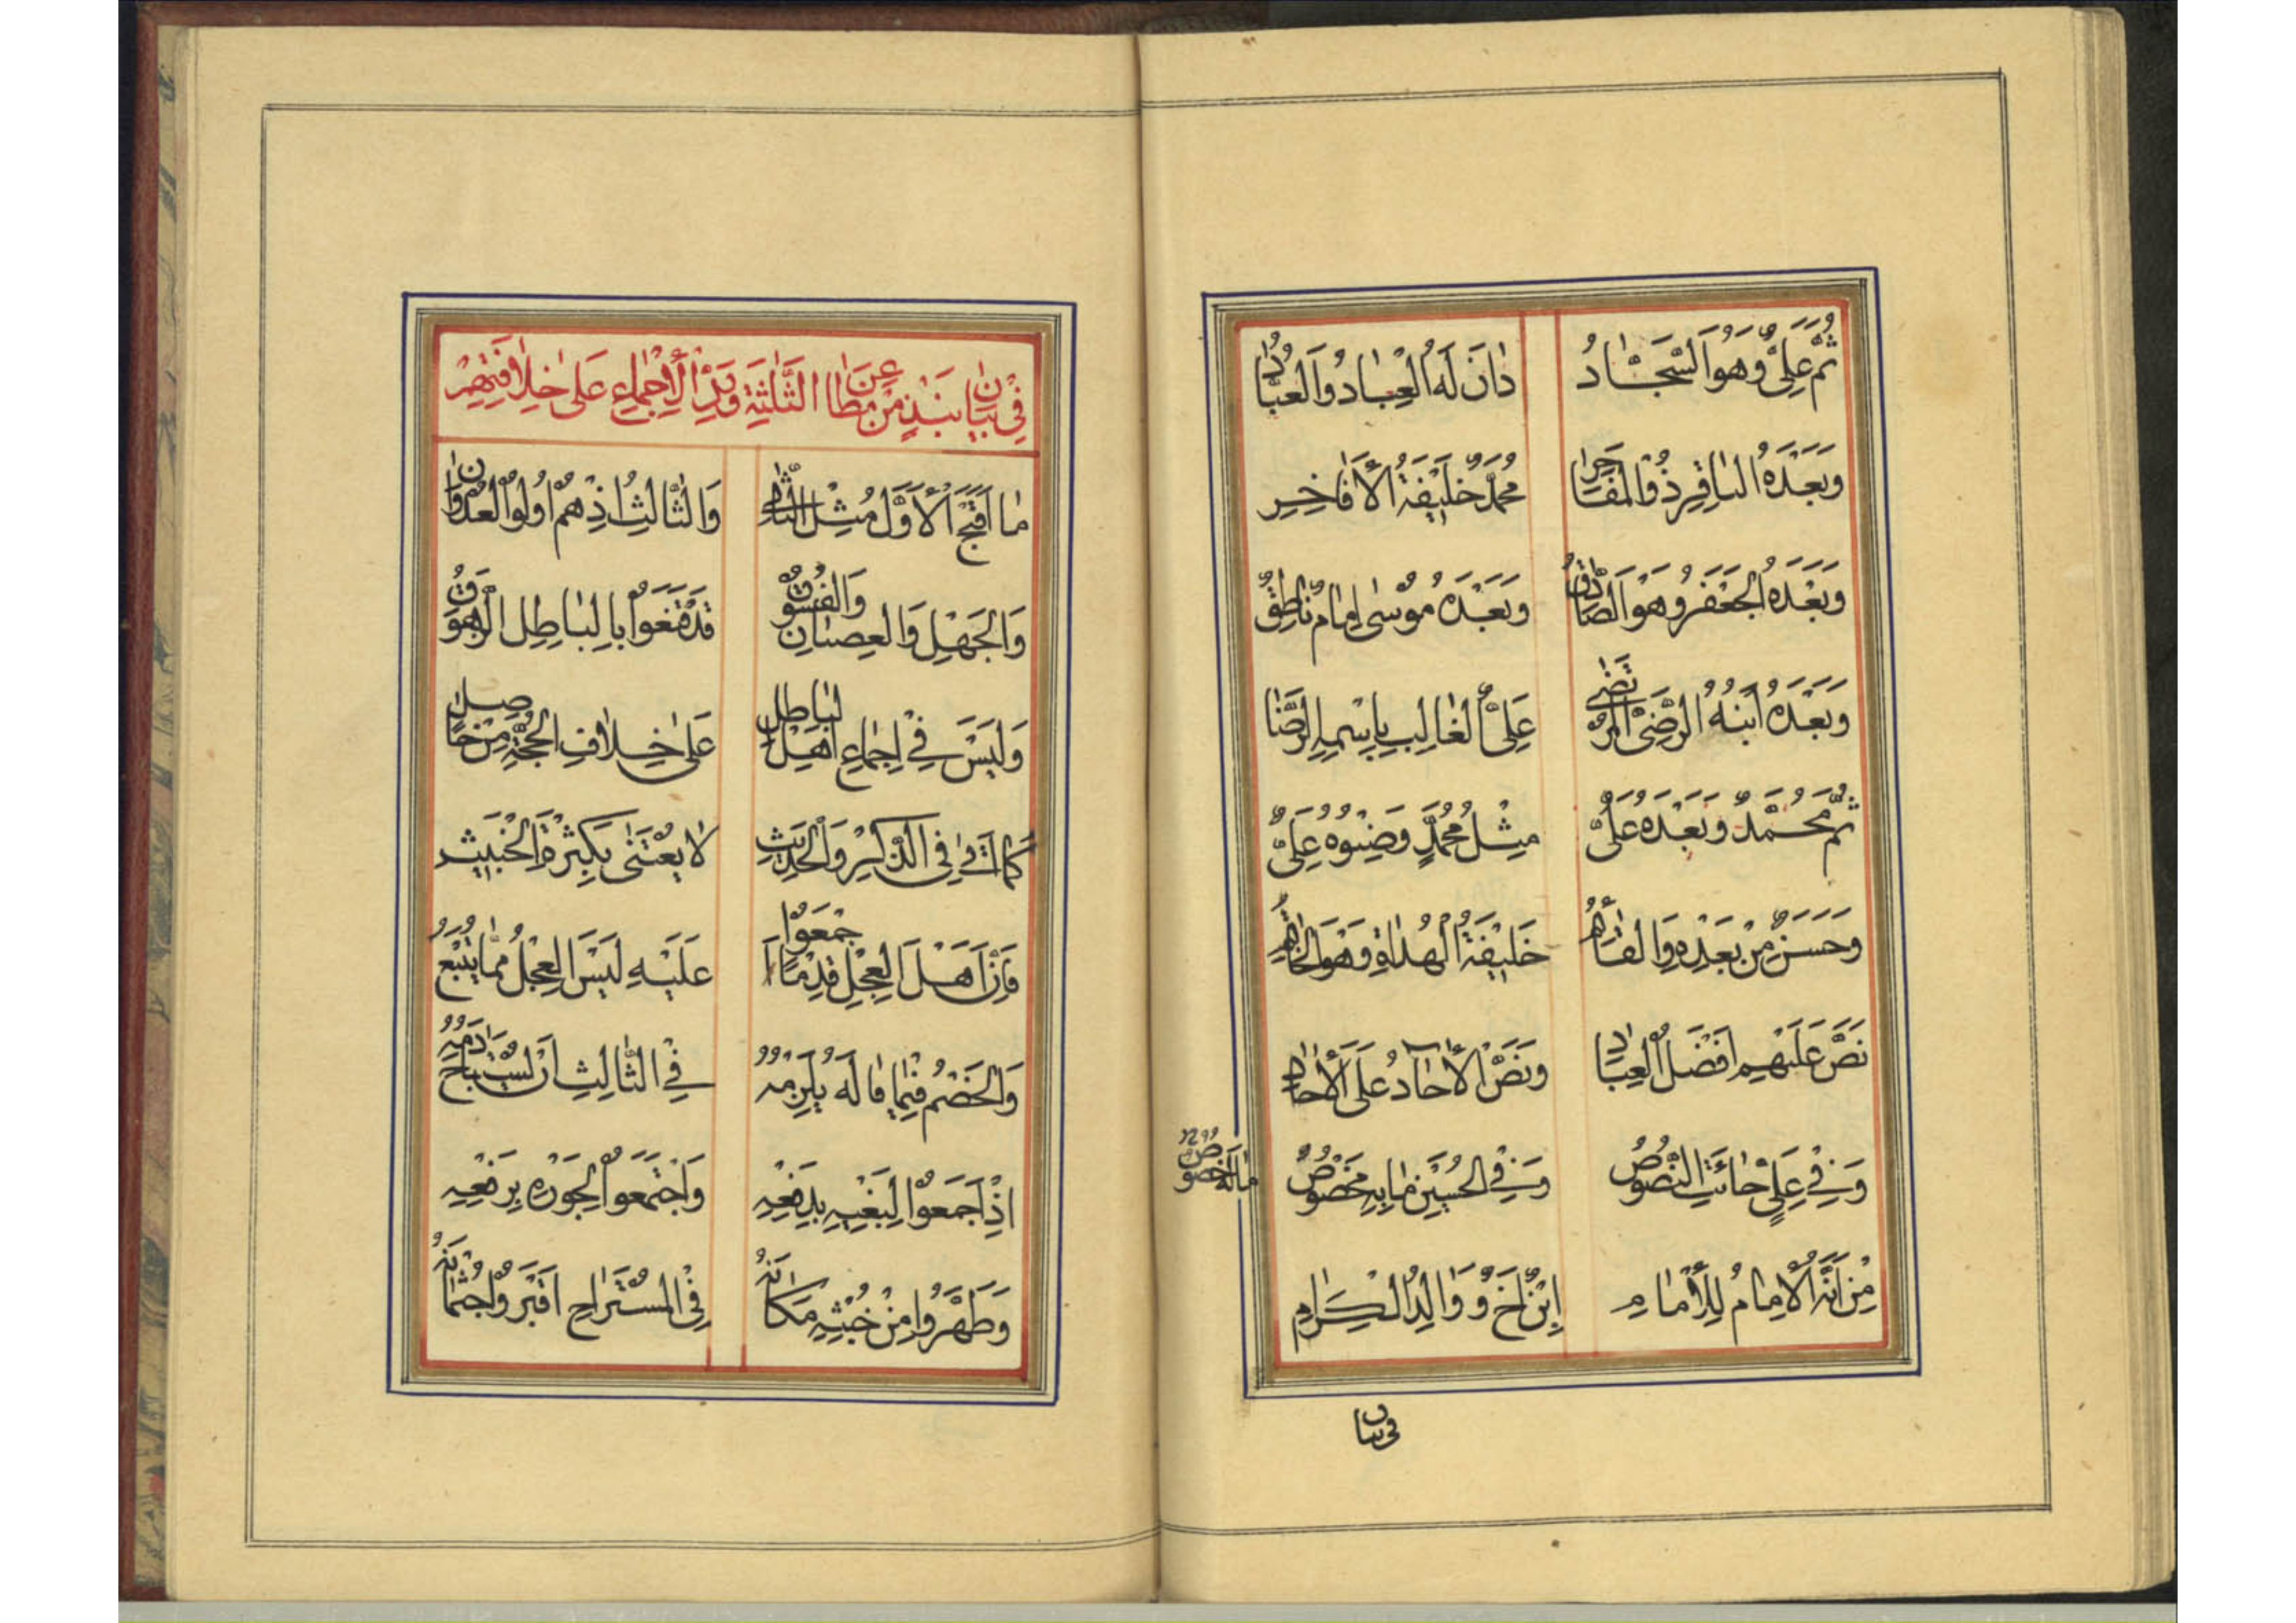 ثُمَّ عَلِىٌّ وَهُوَ السَّجَّادُ دٰانَ لَهُ الْعِبٰادُ وَالْعُبّٰادُ
وَبَعْدَهُ الْبٰاقِرُ ذُو الْمَفٰاخِرِ مُحَمَّدٌ خَلِيْفَةُ الْأَفٰاخِرِ
وَبَعْدَهُ الْجَعْفَرُ وَهُوَ الصّٰادِقُ وَبَعْدَهُ مُوْسٰى إِمٰامٌ نٰاطِقٌ
وَبَعْدَهُ ابْنُهُ الرَّضِىُّ الْمُرْتَضٰى عَلِىٌّ الْغٰالِبُ بِاِسْمِهِ الرِّضٰا
ثُمَّ مُحَمَّدٌ وَبَعْدَهُ عَلِىٌّ مِثْلُ مُحَمَّدٍ وَصِنْوُهُ عَلِىٌّ
وَحَسَنٌ مِنْ بَعْدِهِ وَالْقٰائِمُ خَلِيْفَةُ الْهُدٰاةِ وَهُوَ الْخٰاتِمُ
نَصَّ عَلَيْهِمْ اَفْضَلُ الْعِبٰادِ وَنَصَّ الْاٰحٰادُ عَلَى الْاٰحٰادِ
وَفِيْ عَلِيٍّ جٰائَتِ النُّصُوْصُ وَفِي الْحُسَيْنِ مٰا بِهِ مَخْصُوْصٌ
مٰا لَهُ خُصُوْصٌ
مِنْ اَنَّهُ الْاِمٰامُ لِلْأَنٰامِ اِبْنٌ اَخٌ وَوَالِدُ الْكِرٰامِ
فى بيان
فِيْ بَيٰانِ نَبْذٍ مِنْ مَطٰاعِنِ الثَّلٰثَةِ وَرَدِّ الْأِجْمٰاعِ عَلىٰ خِلٰافَتِهِمْ
مٰا اَقْبَحَ الْاَوَّلَ مِثْلَ الثّٰانِي وَالثّٰالِثُ اِذْ هُمْ اُولُوا الْعُدْوٰانِ
وَالْجَهْلِ وَالْعِصْيٰانِ وَالْفُسُوْقِ قَدْ قَنَعُوْا بِالْبٰاطِلِ الزَّهُوْقِ
وَلَيْسَ فِيْ اِجْمٰاعِ اَهْلِ الْبٰاطِلِ عَلىٰ خِلٰافِ الْحُجَّةِ مِنْ حٰاصِلٍ
كَمٰا اَتٰى فِى الذِّكْرِ وَالْحَدِيْثِ لٰا يُعْتَنٰى بِكَثْرَةِ الْخَبِيْثِ
فَاِنَّ اَهْلَ الْعِجْلِ قِدْمًا اَجْمَعُوْا عَلَيْهِ لَيْسَ الْعِجْلُ مِمّٰا يُتْبَعُ
وَالْخَصْمُ فِيْمٰا قٰالَهُ يُلْزِمُهُ فِي الثّٰالِثِ اَنْ يُسْتَبٰاحَ دَمُهُ
اِذْ اَجْمَعُوْا لِبَغْيِهِ بِدَفْعِهِ وَاجْتَمَعُوْا لِجَوْرِهِ بِرَفْعِهِ
وَطَهَّرُوْا مِنْ خُبْثِهِ مَكٰانَهُ فِي الْمُسْتَرٰاحِ اَقْبَرُوْا جُثْمٰانَهُ